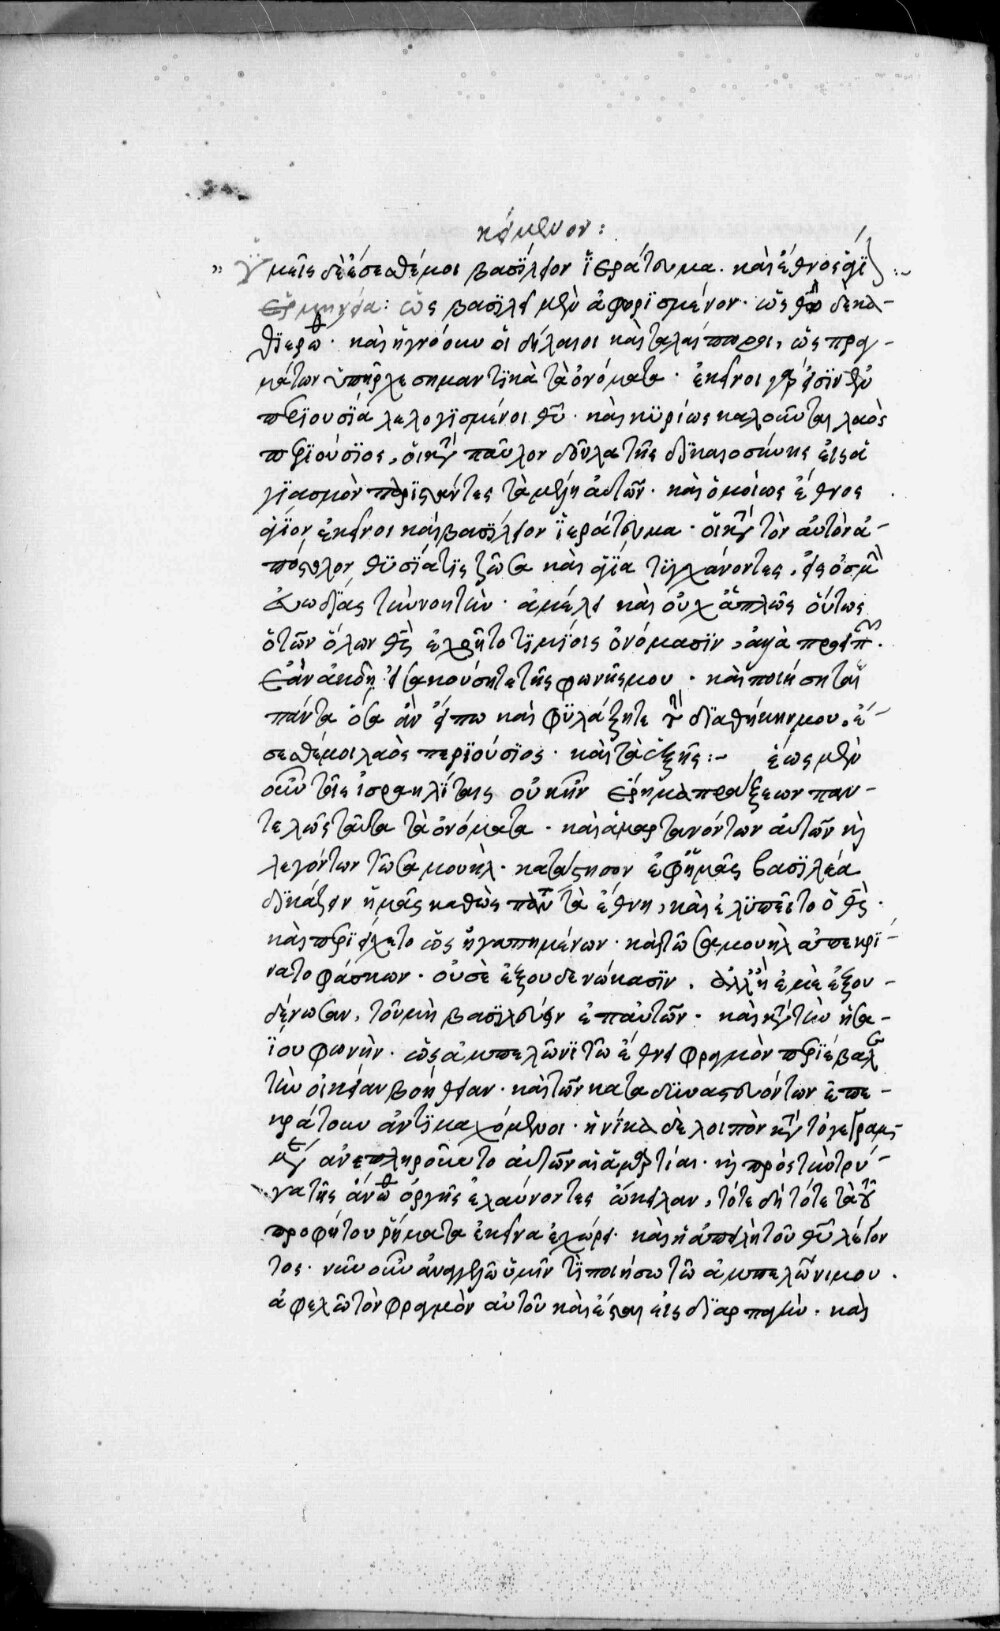 κείμενον:
" ὑμεῖς δὲ ἔσεσθέ μοι βασίλειον ἱεράτευμα. καὶ ἔθνος ἅγι :~
Ἑρμηνεία: ὡς βασιλεῖ μὲν ἀφορισμένον. ὡς θῶ δὲ κα-
θιερῶ. καὶ ἠγνόουν οἱ δείλαιοι καὶ ταλαίπωροι, ὡς πραγ-
μάτων ὑπῆρχε σημαντικὰ τὰ ὀνόματα. ἐκεῖνοι γάρ εἰσιν ἐν
περιουσία λελογισμένοι θῦ. καὶ κυρίως καλοῦνται λαὸς
περιούσιος, οἱ κατὰ παῦλον δοῦλα τῆς δικαιοσύνης εἰς ἁ
γιασμὸν παριστάντες τὰ μέλη αὐτῶν. καὶ ὁμοίως ἔθνος
ἅγιον ἐκεῖνοι καὶ βασίλειον ἱεράτευμα. οἱ κατὰ τὸν αὐτὸν ἀ-
πόστολον θυσία τις ζῶσα καὶ ἁγία τυγχάνοντες, εἰς ὀσμὴν
εὐωδίας τῶν νοητῶν. ἀμέλει καὶ οὐχ ἁπλῶς οὕτως
ὁ τῶν ὅλων θς ἐχρῆτο τιμίοις ὀνόμασιν, ἀλλὰ προειπ.
Ἐὰν ἀκοῆ εἰσακούσητε τῆς φωνῆς μου. καὶ ποιήσητε
πάντα ὅσα ἂν εἴπω καὶ φυλάξητε τὴν διαθήκην μου, ἔ-
σεσθέ μοι λαὸς περιούσιος. καὶ τὰ ἑξῆς:~ ἕως μὲν
οὖν τοῖς ἰσραηλίταις οὐκ ἦν πράξεων παν-
τελῶς ταῦτα τὰ ὀνόματα. καὶ ἁμαρτανόντων αὐτῶν κὶ
λεγόντων τῶ σαμουήλ. κατάστησον ἐφ' ἡμᾶς βασιλέα
δικάζειν ἡμᾶς καθὼς πάντα τὰ ἔθνη, καὶ ἐλυπεῖτο ὁ θς.
καὶ περιείχετο ὡς ἠγαπημένων. καὶ τῶ σαμουὴλ ἀπεκρί-
νατο φάσκων. οὐ σὲ ἐξουδενώκασιν. ἀλλ' ἢ ἐμὲ ἐξου-
δένωσαν, τοῦ μὴ βασιλεύειν ἐπ' αὐτῶν. καὶ κατὰ τὴν ἡσα-
ΐου φωνὴν. ὡς ἀμπελῶνι τῶ ἔθνει φραγμὸν περιέβαλε
τὴν οἰκείαν βοήθειαν. καὶ τῶν καταδυναστευόντων ἐπε-
κράτουν ἀντιμαχόμενοι. ἡνίκα δὲ λοιπὸν κατὰ τὸ γεγραμ-
μένον ἀνεπληροῦντο αὐτῶν αἱ ἁμαρτίαι. κὶ πρὸς τὴν τρύ-
γα τῆς ἄνωθεν ὀργῆς ἐλαύνοντες ὤκειλαν, τότε δὴ τότε τὰ τοῦ
προφήτου ῥήματα ἐκεῖνα ἐχώρει. καὶ ἡ ἀπειλὴ τοῦ θῦ λέγον
τος. νῦν οὖν ἀναγγελῶ ὑμῖν τί ποιήσω τῶ ἀμπελῶνι μου.
ἀφελῶ τὸν φραγμὸν αὐτοῦ καὶ ἔσται εἰς διαρπαγήν. καὶ